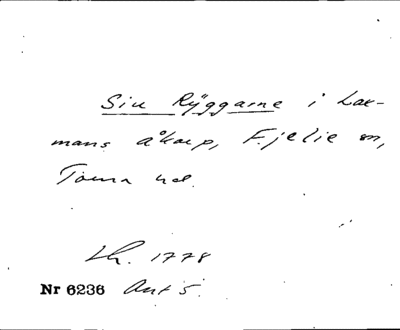 Siu Rÿggarne i Lac-
mans åkarp, Fjelie sn,
Torna hd.
Lh. 1778
Nr 6236 Akt 5.